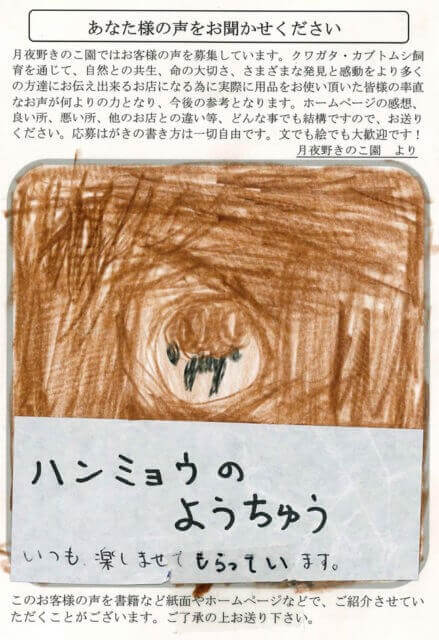 あなた様の声をお聞かせください
月夜野きのこ園ではお客様の声を募集しています。クワガタ・カブトムシ飼
育を通じて、自然との共生、命の大切さ、さまざまな発見と感動をより多く
の方達にお伝え出来るお店になる為に実際に用品をお使い頂いた皆様の率直
なお声が何よりの力となり、今後の参考となります。ホームページの感想、
良い所、悪い所、他のお店との違い等、どんな事でも結構ですので、お送り
ください。応募はがきの書き方は一切自由です。文でも絵でも大歓迎です！
月夜野きのこ園　より
ハンミョウの
ようちゅう
いつも、楽しませてもらっています。
このお客様の声を書籍など紙面やホームページなどで、ご紹介させてい
ただくことがございます。ご了承の上お送り下さい。